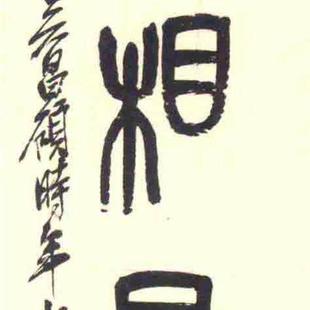 相
吳昌碩時年